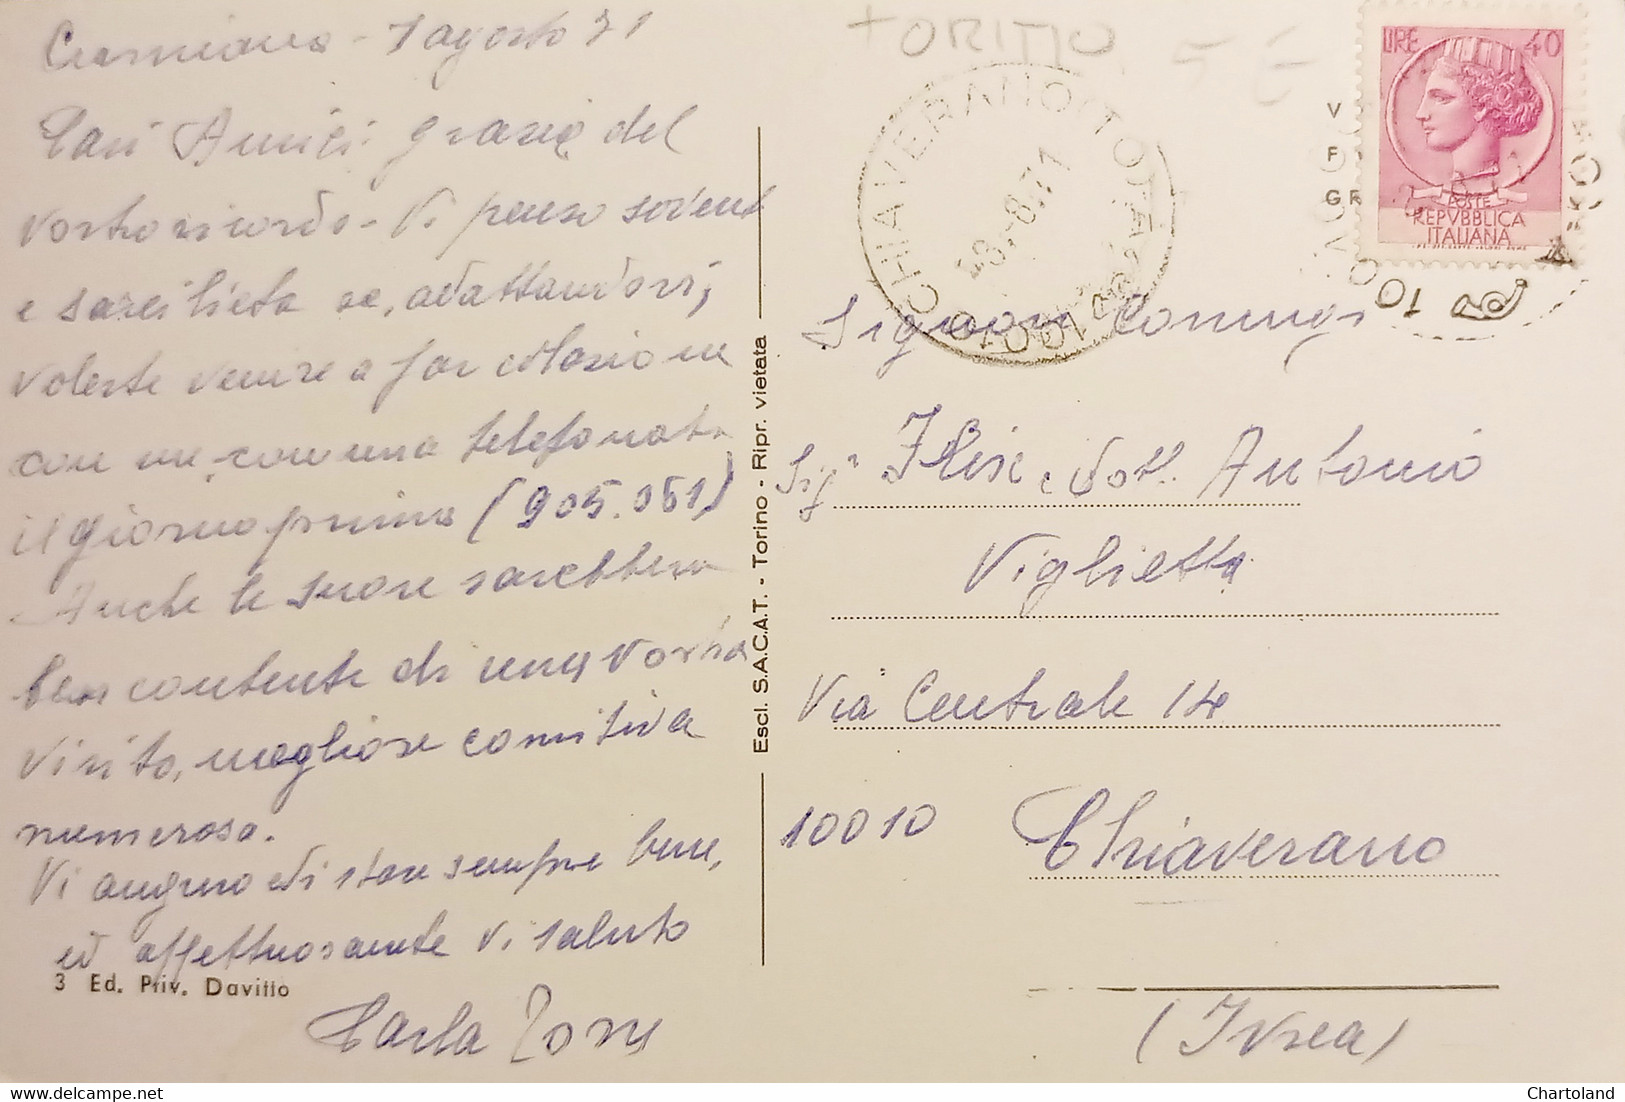 - 7 agosto 71
Cari Amici, grazie del
vostro ricordo - Vi penso sovente
e sarei lieta se, adattandovi,
voleste venire a far colazione
con me, con una telefonata
il giorno prima (905.051)
Anche le suore sarebbero
ben contente di una vostra
visita, magliose comitiva
numerosa.
Vi auguro di star sempre bene,
ed affettuosamente Vi saluto
Carla
3 Ed. Priv. Davitto
Escl. S.A.C.A.T. - Torino - Ripr. vietata
TORITIO 5 E
CHIAVERANO (TO)
-8.71
LIRE 40
POSTE
REPVBBLICA
ITALIANA
V
F
GR
10
Signori Coniugi
Sig.ra dott. Antonio
Viglietta
Via Centrale 14
10010 Chiaverano
(Ivrea)
Chartoland
delcampe.net